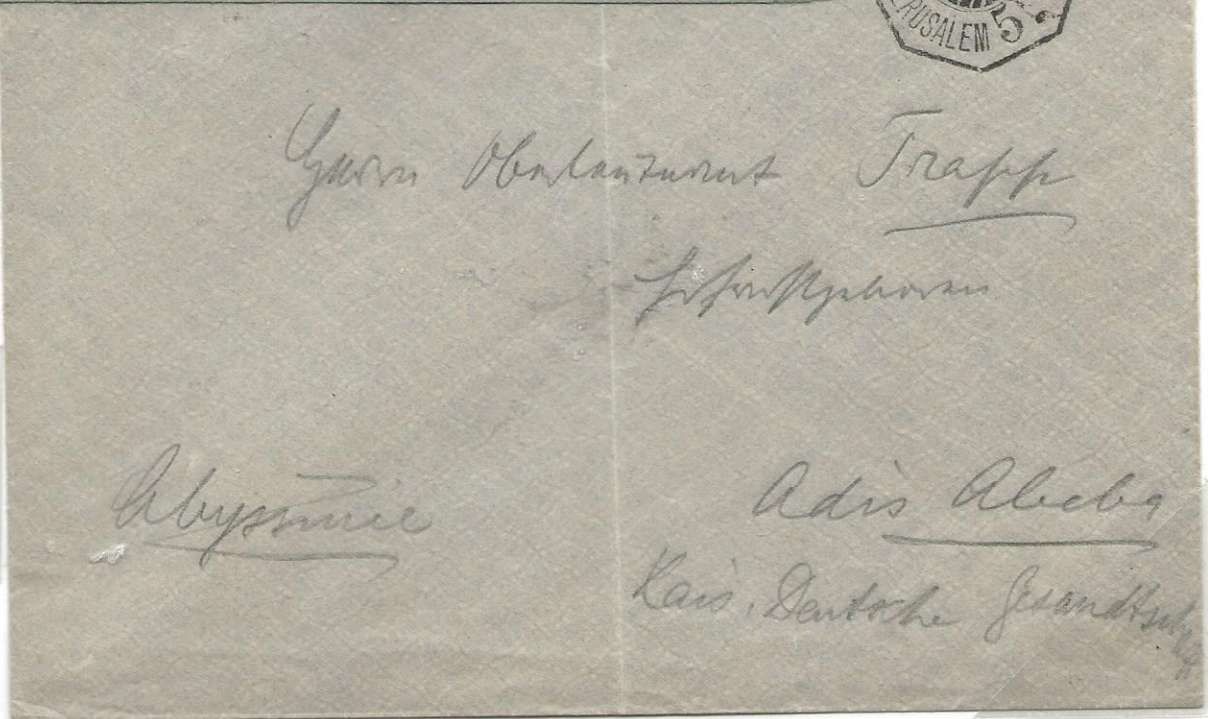 JERUSALEM 5
Herrn Oberleutnant Trapp
Hochwohlgeboren
Abyssinie
Adis Abeba
Kais. Deutsche Gesandtschaft